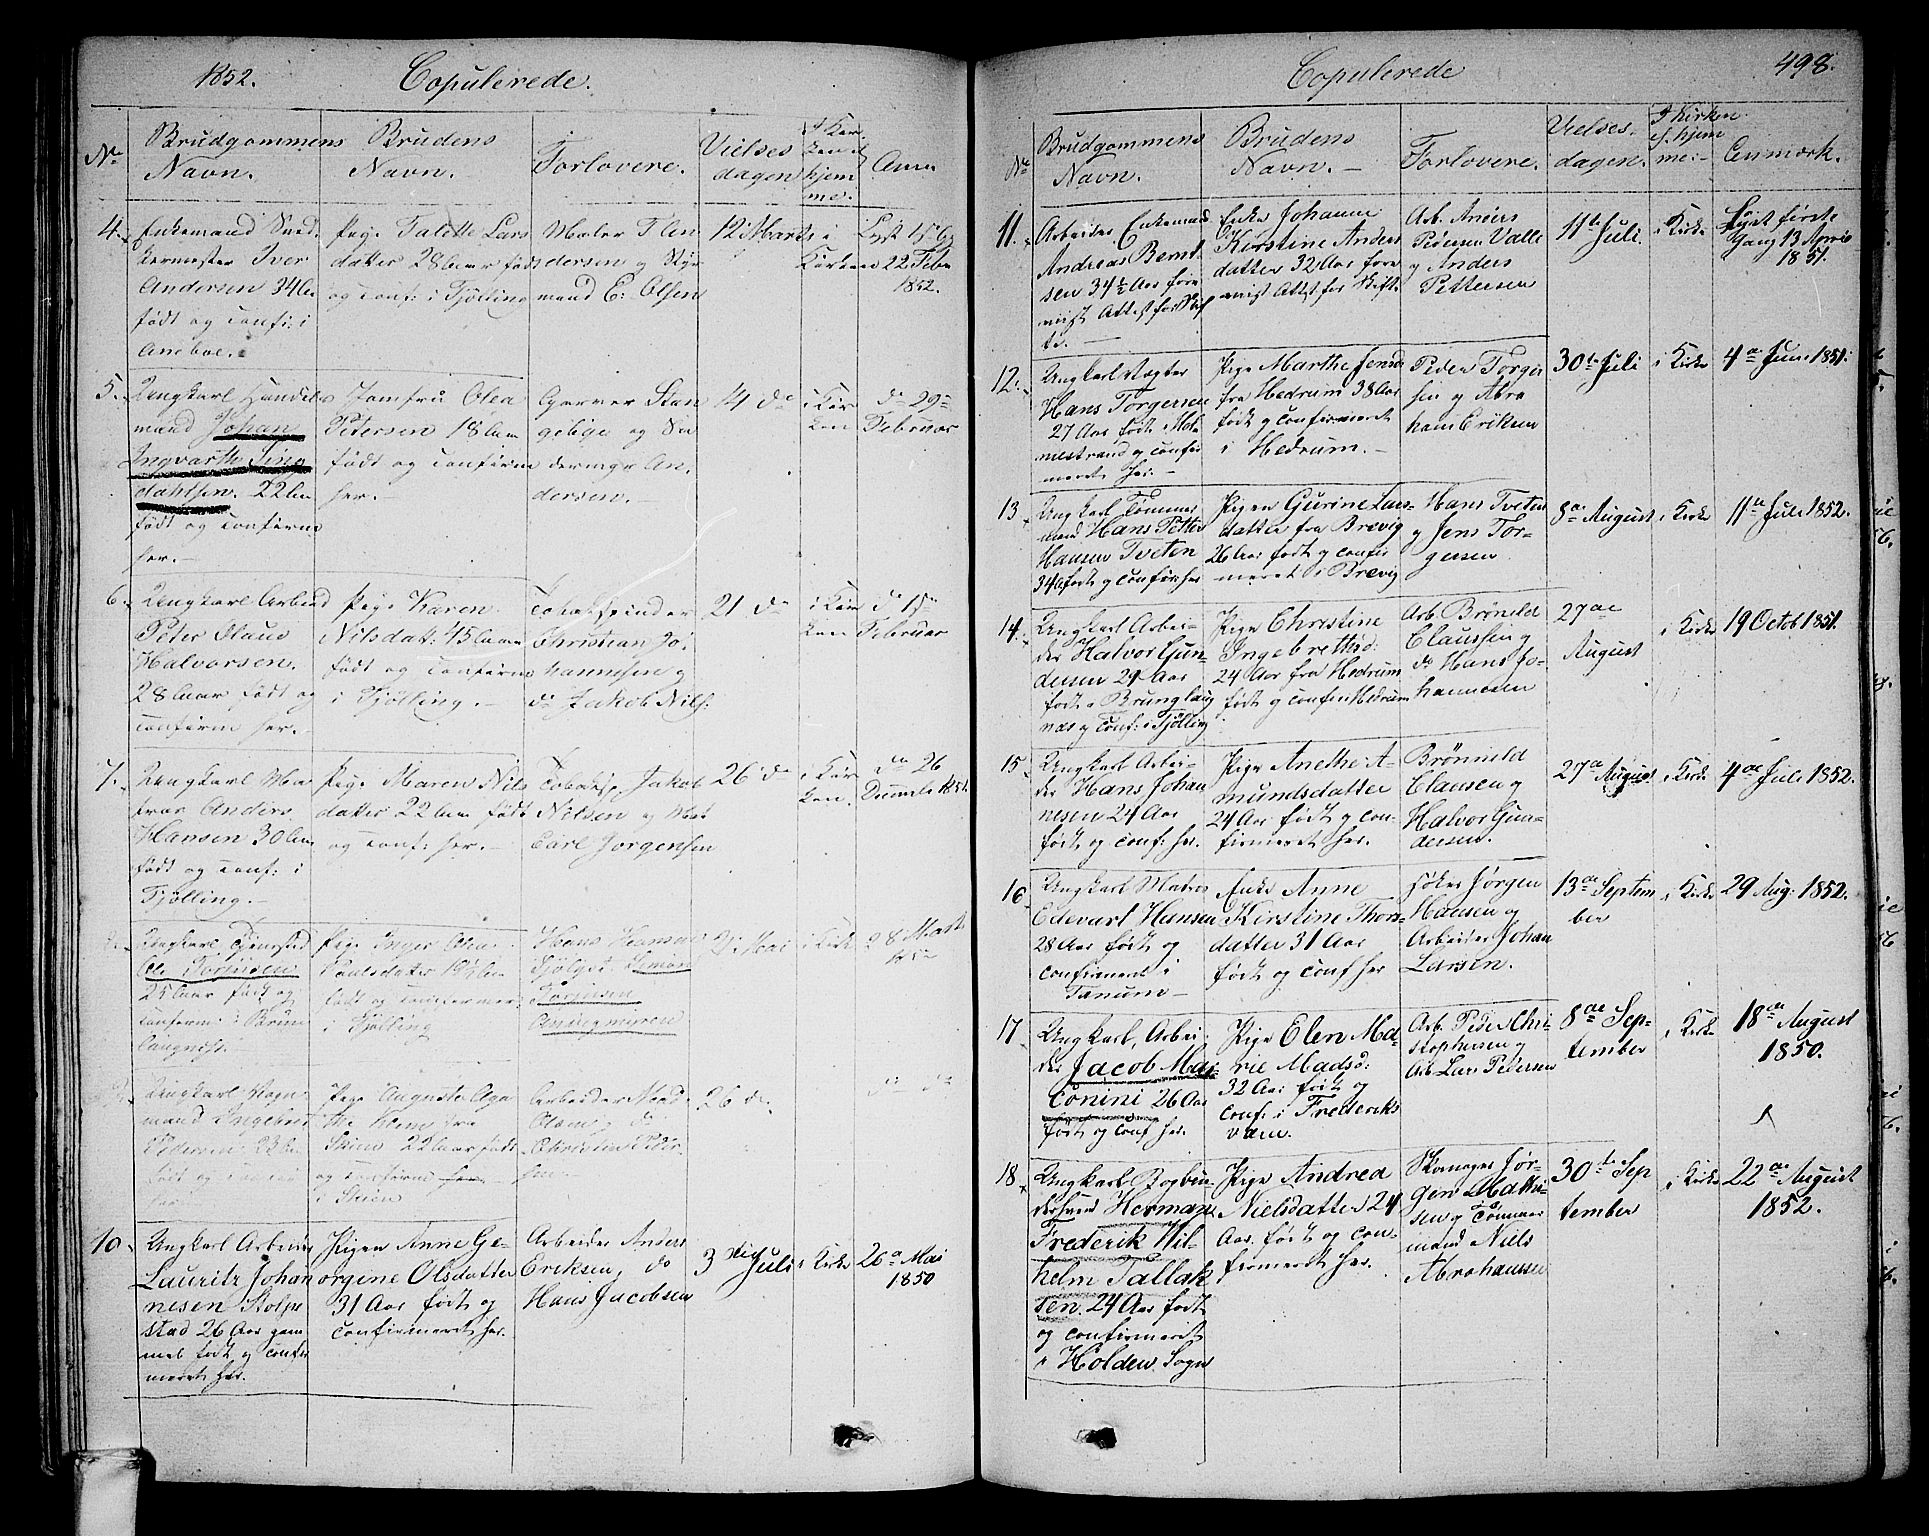 1852.
Copulerede.
No
Brudgommens
Navn.
Brudens
Navn.
Forlovere.
Vielses
dagen
I Kir
ken el
hjem
me.
Anm
4.
Enkemand Sned
kermester Iver
Andersen 34 Aar
født og conf: i
Aneboe.
Pige Talette Lars
datter 28 Aar født
og conf: i Tjølling
Maler Flen
dersen og Styr
mand E: Olsen
12 Marts
i
Kirken
Lyst 15 og
22 Feb
1852.
5.
Ungkarl Handels
mand Johan
Ingvarth Ting
dahlsen. 22 Aar
født og confirm
her.
Jomfru Olea
Petersen 18 Aar
født og confirm
her.
Garver Stan
gebige og Sn
dermgr An
dersen.
14 do
i Kir
ken
do 29
Februar
6.
Ungkarl Arbeid
Peter Olaus
Halvorsen.
28 Aar født og
confirm her.
Pige Karen
Nilsdat: 45 Aar
født og confirm
i Tjølling.
Tobakspinder
Christian Jo
hannesen og
do Jakob Nils:
21 do
i Kir
ken
do 15
Februar
7.
Ungkarl Ma
tros Anders
Hansen 30 Aar
født og conf: i
Tjølling.
Pige Maren Nils
datter 22 Aar født
og conf: her.
Tobaksp Jakob
Nilsen og Mat
Carl Jorgensen
26 do
i Kir
ken.
do 26
Decemb 1851.
Ole
25 Aar født og
confirm: i Brun
laugnæs.
Pige Inger Olea
Paulsdatter 19½ Aar
født og confirmer
i Tjølling
Hans Hansen
Simon
2 Mai
i Kirk
28 Marts
1852
Ungkarl Vogn
mand Ingebret
Pedersen 23 Aar
født og confir
her
Pige Auguste Aga
the
fra
Skien 22 Aar født
og confirm her
i Skien
Arbeider
Olsen og do
Christian Peder
sen
26 do
do do
10.
Ungkarl Arbeider
Lauritz Johan
nesen Stolpe
stad 26 Aar gam
mel født og confir
meret her.
Pigen Anne Ge-
orgine Olsdatter
31 Aar født og
confirmeret her.
Arbeider Anders
Eriksen, do
Hans Jacobsen
3 die Juli
i Kirk
20 Mai
1850
Copulerede
498.
No
Brudgommens
Navn.
Brudens
Navn.
Forlovere.
Vielses-
dagen.
I Kirken
el. hjem
me:
Anmærk.
11.
Arbeider Enkemand
Andreas Bernt
sen 34½ Aar fore
vist Attest for Skif
te.
Enke Johanne
Kirstine Anders
datter 32 Aar fore
vist Attest for Skifte
Arb. Anders
Pedersen Valle
og Anders
Pettersen
11te Juli.
i Kirke
Lyst første
Gang 13 April
1851.
12.
Ungkarl Vogter
Hans Torgersen
27 Aar født i Hol
mestrand og confir
meret her.
Pige Marthe Jensd
fra Hedrum 38 Aar
født og confirmeret
i Hedrum.
Peder Torger
sen og Abra
ham Eriksen
30te Juli
i Kirke
4de Juni 1851.
13
Ungkarl Tømmer
mand Hans Petter
Hansen Tveten
34 Aar født og confirm her
Pigen Gurine Lars-
datter fra Brevig
26 Aar født og confir
meret i Brevig
Hans Tveten
og Jens Tor-
gersen
8de August
i Kirke
11te Juli 1852.
14.
Ungkarl Arbei-
der Halvor Gun-
dersen 29 Aar
født i Brunglaug
næs og conf: i Tjølling
Pige Christine
Ingebrethsd:
24 Aar fra Hedrum
født og confir i Hedrum
Arb. Brønild
Claussen og
do Hans Jo-
hannesen
27de
August
i Kirke
19 Octob 1851.
15
Ungkarl Arbei-
der Hans Johan
nesen 24 Aar
født og conf: her.
Pige Anethe A-
mundsdatter
24 Aar født og con-
firmeret her.
Brønnild
Clausen og
Halvor Gun-
dersen.
27de August
i Kirke
4de Juli 1852.
16
Ungkarl Matros
Edevart Hansen
28 Aar født og
confirmeret i
Tanum
Enke Anne
Kirstine Thors-
datter 31 Aar
født og conf her
Jørgen
Hansen og
Arbeider Johan
Larsen.
13de Septem
ber
i Kirke
29 Aug. 1852.
17
Ungkarl, Arbei
der Jacob Mar
conini 26 Aar
født og conf her.
Pige Elen Ma-
rie Madsd:
32 Aar født og
conf: i Frederiks
værn.
Arb. Peder Chri-
stophersen og
Arb. Lars Pedersen
8de Sep-
tember
i Kirke
18de August
1850.
18
Ungkarl Bogbin
dersvend Herman
Frederik Wil-
helm Tallak
sen. 24 Aar født
og confirmeret
i Holden Sogn
Pige Andrea
Nielsdatter 24
Aar. født og con-
firmeret her.
Skomager Jør-
gen Mathi-
sen og Tømmer
mand Niels
Abrahamsen
30te Sep
tember
i Kirke
22de August
1852.